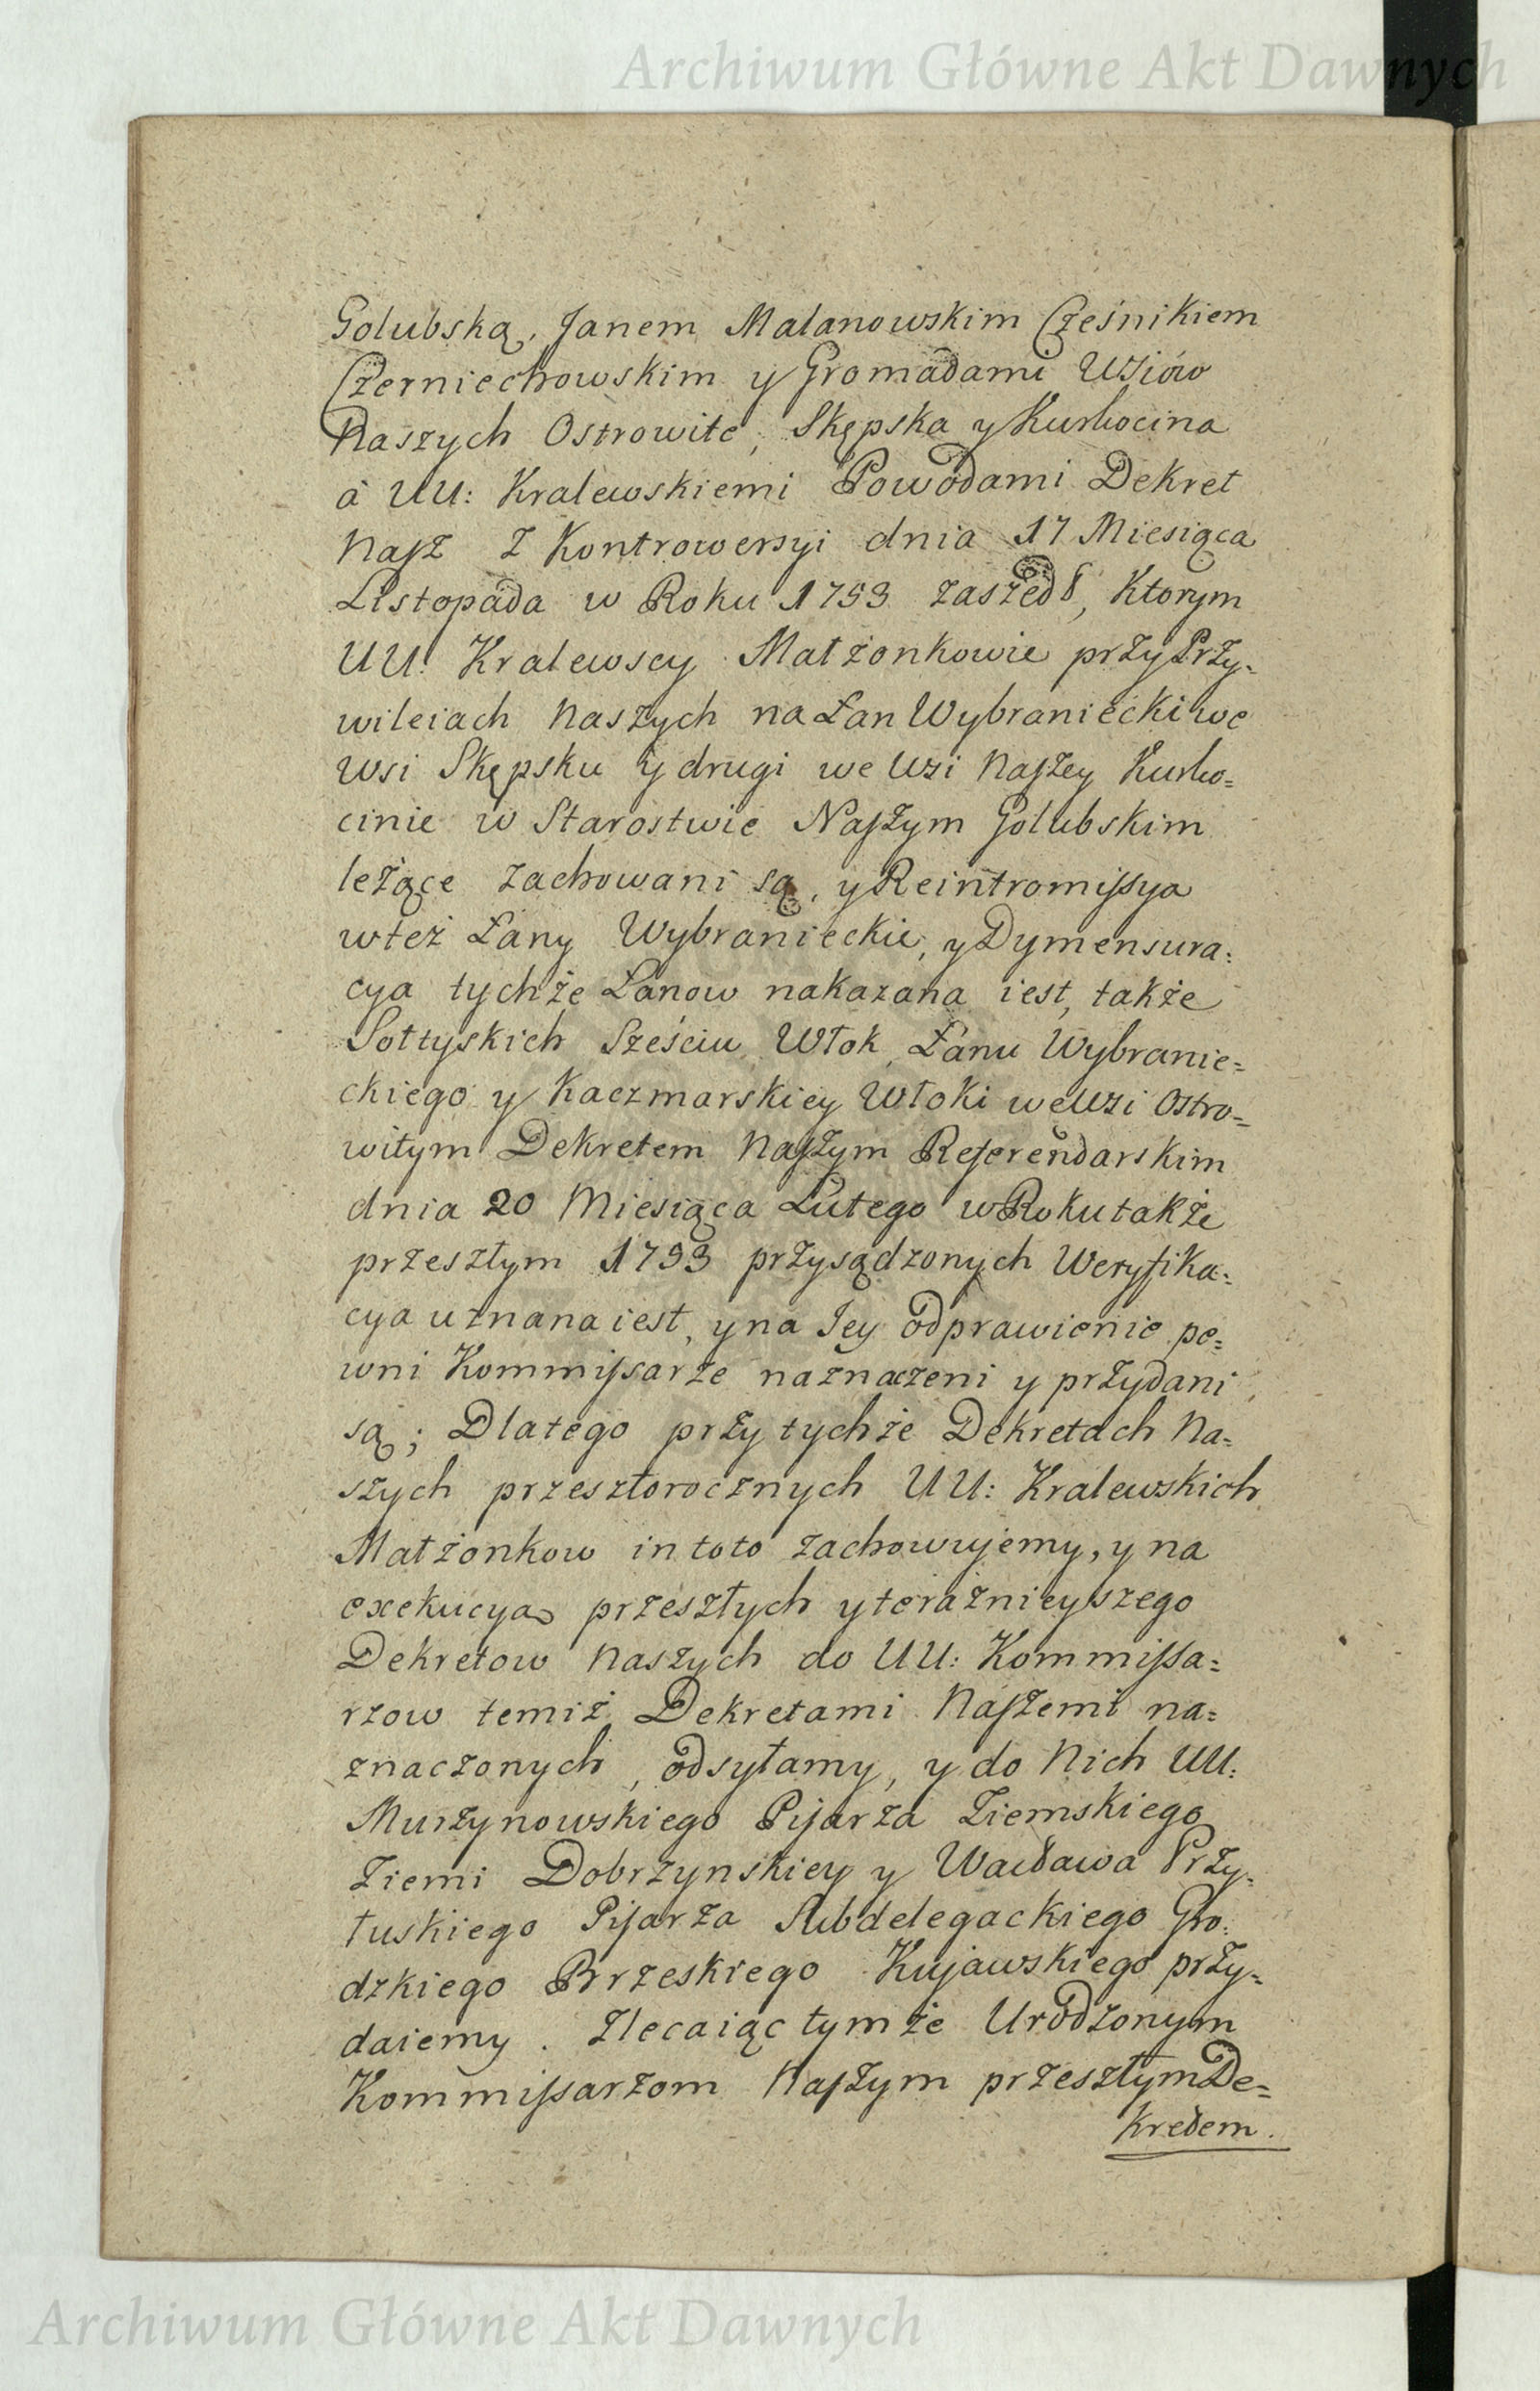 Archiwum Główne Akt Dawnych
Golubską, Janem Małanowskim Cześnikiem
Czerniechowskim y Gromadami Wsiów
Naszych Ostrowite, Skępska y Kurkocina
à UU: Kralewskiemi Powodami Dekret
Nasz z Kontrowersyi dnia 17 Miesiąca
Listopada w Roku 1793 zaszedł, Ktorym
UU: Kralewscy Małżonkowie przy Przy=
wileiach Naszych na Łan Wybraniecki we
Wsi Skępsku y drugi we Wsi Naszey Kurko=
cinie w Starostwie Naszym Golubskim
leżące zachowani są, y Reintromissya
w też Łany Wybranieckie, y Dymensura=
cya tychże Łanow nakazana iest, także
Sołtyskich Sześciu Włok, Łanu Wybranie=
ckiego y Kaczmarskiey Włoki we Wsi Ostro=
witym Dekretem Naszym Referendarskim
dnia 20 Miesiąca Lutego w Roku także
przeszłym 1793 przysądzonych Weryfika=
cya uznana iest, y na Jey odprawienie pe=
wni Kommissarze naznaczeni y przydani
są; Dlatego przy tychże Dekretach Na=
szych przeszłorocznych UU: Kralewskich
Małżonkow in toto zachowujemy, y na
exekucyą przeszłych y teraznieyszego
Dekretow Naszych do UU: Kommissa=
rzow temiż Dekretami Naszemi na=
znaczonych, odsyłamy, y do Nich UU:
Murzynowskiego Pisarza Ziemskiego
Ziemi Dobrzynskiey y Wacława Przy=
łuskiego Pisarza Subdelegackiego Gro=
dzkiego Brzeskiego Kujawskiego przy=
daiemy. Zlecaiąc tymże Urodzonym
Kommissarzom Naszym przeszłym De=
kretem.
Archiwum Główne Akt Dawnych